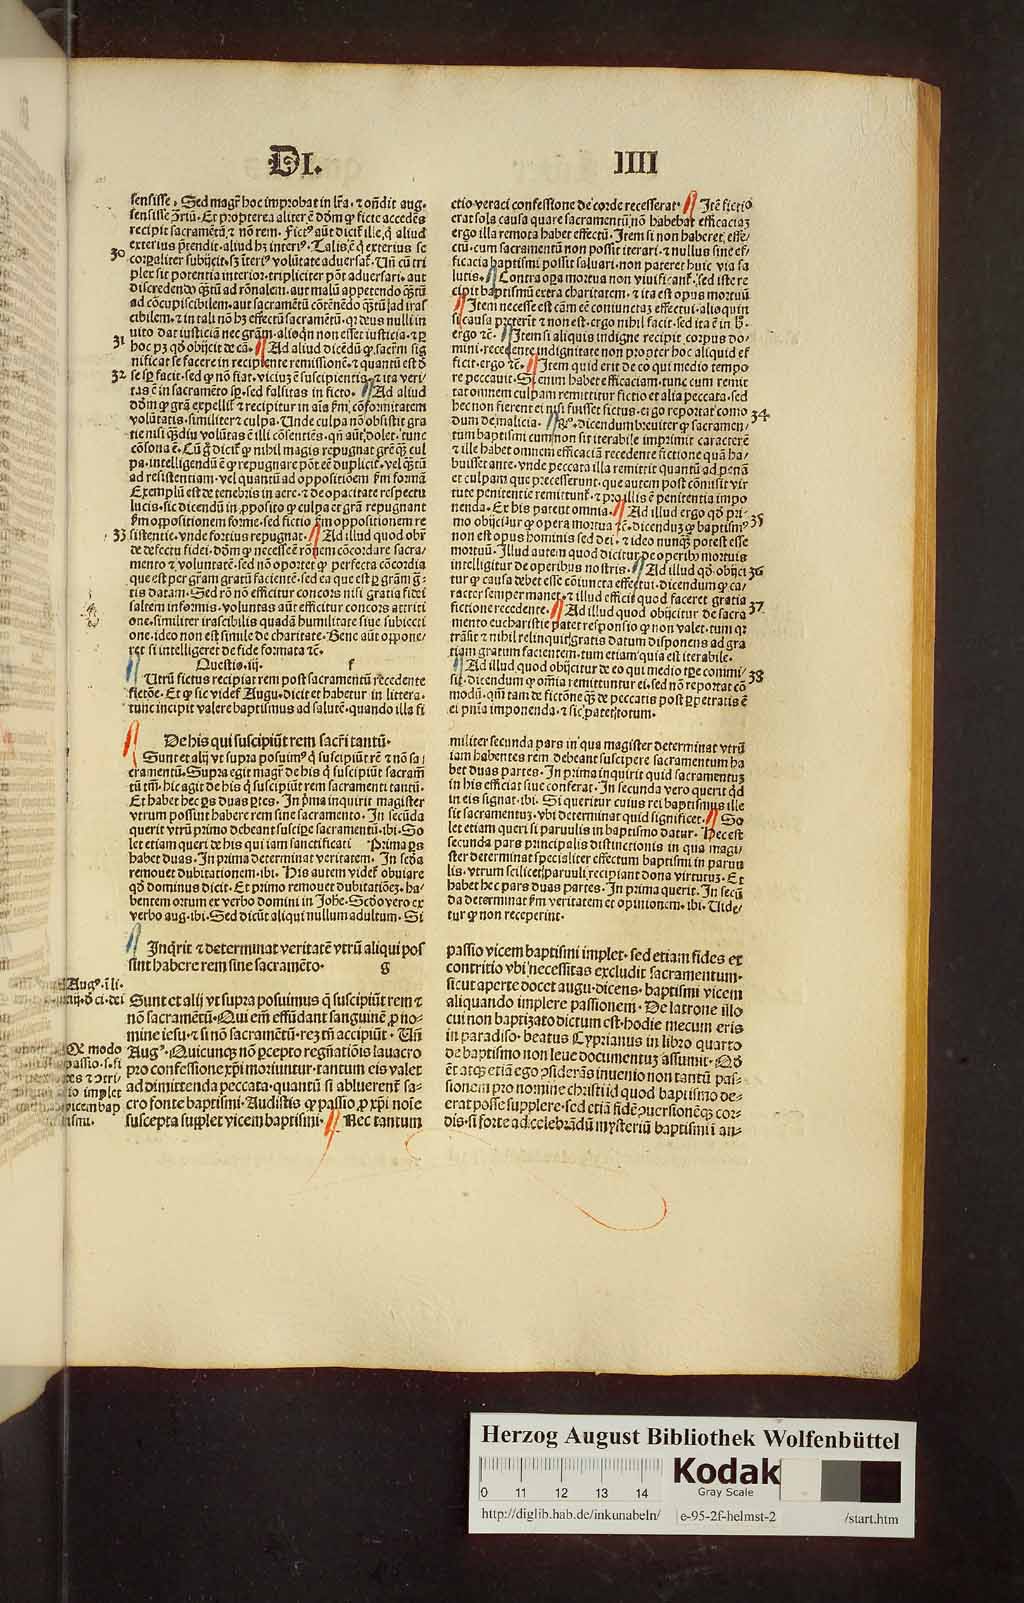 DI. IIII
sensisse. Sed magr̄ hoc improbat in lr̄a. ⁊ on̄dit aug.
recipit sacramētū ⁊ nō rem. Fict⁹ aūt dicit̄ ille, q̄ aliud
exterius p̄tendit. aliud hꝫ interi⁹. Talis ē q̄ exterius se
30
plex sit potentia interior. tripliciter pōt aduersari. aut
discredendo qͣꝫtū ad rōnalem. aut malū appetendo qͣꝫtū
ad cōcupiscibilem. aut sacramētū cōtēnēdo qͣꝫtū ad iras
cibilem. ⁊ in tali nō hꝫ effectū sacramētū. qꝛ deus nulli in
uito dat iusticiā nec grām. alioqn̄ non esset iusticia. ⁊ ꝑ
31 hoc pꝫ qd̄ obijcit de cā. Ad aliud dicēdū ꝙ sacrm̄ sig
nificat se facere in recipiente remissionē. ⁊ quantū est d̄
32 se sꝑ facit. sed ꝙ nō fiat. viciuꝫ ē suscipientis. ⁊ ita veri/
tas ē in sacramēto sꝑ. sed falsitas in ficto. Ad aliud
dōm ꝙ grā expellit̄ ⁊ recipitur in aīa ẜm cōformitatem
volūtatis. similiter ⁊ culpa. Unde culpa nō obsistit gra
tie nisi qͣꝫdiu volūtas ē illi cōsentiēs. qn̄ aūt dolet. tunc
cōsona ē. Cū g̊ dicit̄ ꝙ nihil magis repugnat gr̄e qͣꝫ cul
pa. intelligendū ē ꝙ repugnare pōt eē duplicit̄. vel qͣꝫtū
ad resistentiam. vel quantū ad oppositioēm ẜm formā
Exemplū est de tenebris in aere. ⁊ de opacitate respectu
lucis. sic dicendū in ꝓposito ꝙ culpa et grā repugnant
ẜm oppositionem forme. sed fictio ẜm oppositionem re
33 sistentie. vnde fortius repugnat. Ad illud quod obijr̄
de defectu fidei. dōm ꝙ necesse ē rōnem cōcordare sacra/
mento ⁊ voluntatē. sed nō oportet ꝙ perfecta cōcordia
que est per gram̄ gratū facientē. sed ea que est ꝑ grām ḡ-
tis datam. Sed rō nō efficitur concors nisi gratia fidei
saltem informis. voluntas aūt efficitur concors attriti
one. similiter irascibilis quadā humilitate siue subiecti
one. ideo non est simile de charitate. Bene aūt oppone/
ret si intelligeret de fide formata ⁊c̄.
Questio .iij. f
Utrū fictus recipiat rem post sacramentū recedente
fictōe. Et ꝙ sic videt̄ Augu. dicit et habetur in littera.
tunc incipit valere baptismus ad salutē. quando illa fi
ctio veraci confessione de corde recesserat. Itē fictio
erat sola causa quare sacramentū nō habebat efficaciaꝫ
ergo illa remota habet effectū. Item si non haberet, effe/
ctū. cum sacramentū non possit iterari. ⁊ nullus sine ef/
ficacia baptismi possit saluari. non pateret huic via sa
lutis. Contra oꝑa mortua non viuificant̄. sed iste re
cipit baptismū extra charitatem. ⁊ ita est opus mortuū
Item necesse est cām eē coniunctaꝫ effectui. alioquin
ergo ⁊c̄. Item si aliquis indigne recipit corpus do/
mini. recedente indignitate non propter hoc aliquid ef
ficit. ergo ⁊c̄. Item quid erit de eo qui medio tempo
re peccauit. Si enim habet efficaciam. tunc cum remit
tat omnem culpam remittitur fictio et alia peccata. sed
hec non fierent ei nisi fuisset fictus. ergo reportat como 34
dum de malicia. Rñ. dicendum breuiter ꝙ sacramen/
tum baptismi cum non sit iterabile imprimit caracterē
⁊ ille habet omnem efficaciā recedente fictione quā ha/
buisset ante. vnde peccata illa remittit quantū ad penā
et culpam que precesserunt. que autem post cōmisit vir
tute penitentie remittunt̄. ⁊ pro illis ē penitentia impo
nenda. Et his patent omnia. Ad illud ergo qd̄ pri/ 35
mo obijcit̄ ꝙ opera mortua ⁊c̄. dicenduꝫ ꝙ baptism⁹
non est opus hominis sed dei. ⁊ ideo nunqͣꝫ potest esse
mortuū. Illud autem quod dicitur de operib⁹ mortuis
intelligitur de operibus nostris. Ad illud qd̄ obijci 36
tur ꝙ causa debet esse cōiuncta effectui. dicendum ꝙ ca/
racter semper manet. ⁊ illud efficit quod faceret gratia
fictione recedente. Ad illud quod obijcitur de sacra 37
mento eucharistie patet responsio ꝙ non valet. tum qꝛ
trāsit ⁊ nihil relinquit gratis datum disponens ad gra
tiam gratum facientem. tum etiam quia est iterabile.
Ad illud quod obijcitur de eo qui medio tꝑe commi/ 38
sit. dicendum ꝙ om̄ia remittuntur ei. sed nō reportat cō
modū. qm̄ tam de fictōne qͣꝫ de peccatis post ꝑpetratis ē
ei pn̄ia imponenda. ⁊ sic patet totum.
De his qui suscipiūt rem sacrī tantū.
Sunt et alij vt supra posuim⁹ q̄ suscipiūt rē ⁊ nō sa/
cramentū. Supra egit magr̄ de his q̄ suscipiūt sacram̄
tū tm̄. hic agit de his q̄ suscipiūt rem sacramenti tantū.
Et habet hec ꝑs duas ꝑtes. In pͥma inquirit magister
vtrum possint habere rem sine sacramento. In secūda
querit vtrū primo debeant suscipe sacramentū. ibi. So
let etiam queri de his qui iam sanctificati Prima ꝑs
habet duas. In prima determinat veritatem. In scd̄a
remouet dubitationem. ibi. His autem videt̄ obuiare
qd̄ dominus dicit. Et primo remouet dubitatiōeꝫ. ha/
bentem ortum ex verbo domini in Johē. Scd̄o vero ex
verbo aug. ibi. Sed dicūt aliqui nullum adultum. Si
militer secunda pars in qua magister determinat vtrū
iam habentes rem debeant suscipere sacramentum ha
bet duas partes. In prima inquirit quid sacramentuꝫ
in his efficiat siue conferat. In secunda vero querit qd̄
in eis signat. ibi. Si queritur cuius rei baptismus ille
sit sacramentuꝫ. vbi determinat quid significet. So
let etiam queri si paruulis in baptismo datur. Hec est
secunda pars principalis distinctionis in qua magi/
ster determinat specialiter effectum baptismi in paruu
lis. vtrum scilicet paruuli recipiant dona virtutuꝫ. Et
habet hec pars duas partes. In prima querit. In secū
da determinat ẜm veritatem et opinionem. ibi. Uide/
tur ꝙ non receperint.
Inqͥrit ⁊ determinat veritatē vtrū aliqui pos
sint habere rem sine sacramēto. g
Aug⁹. ī li.
Sunt et alij vt supra posuimus q̄ suscipiūt rem ⁊
nō sacramētū. Qui em̄ effūdant sanguinē ꝓ no-
mine iesu. ⁊ si nō sacramētū. reꝫ tn̄ accipiūt. Un̄
Aug⁹. Quicunqꝫ nō ꝑcepto regn̄atiōis lauacro
pro confessione xp̄i moriuntur. tantum eis valet
ad dimittenda peccata. quantū si abluerent̄ sa-
cro fonte baptismi. Audistis ꝙ passio ꝓ xp̄i noīe
suscepta supplet vicem baptismi. Nec tantum
passio vicem baptismi implet. sed etiam fides et
contritio vbi necessitas excludit sacramentum.
sicut aperte docet augu. dicens. baptismi vicem
aliquando implere passionem. De latrone illo
cui non baptizato dictum est. hodie mecum eris
in paradiso. beatus Cyprianus in libro quarto
de baptismo non leue documentuꝫ assumit. Qd̄
ēt atqꝫ etiā ego ↄsiderās inuenio non tantū pas-
sionem pro nomine christi id quod baptismo de-
erat posse supplere. sed etiā fidē ↄuersionēqꝫ cor-
dis. si forte ad celebrādū mysteriū baptismi ī an-
Herzog August Bibliothek Wolfenbüttel
0 11 12 13 14
Kodak
Gray Scale
http://diglib.hab.de/inkunabeln/ e-95-2f-helmst-2 /start.htm